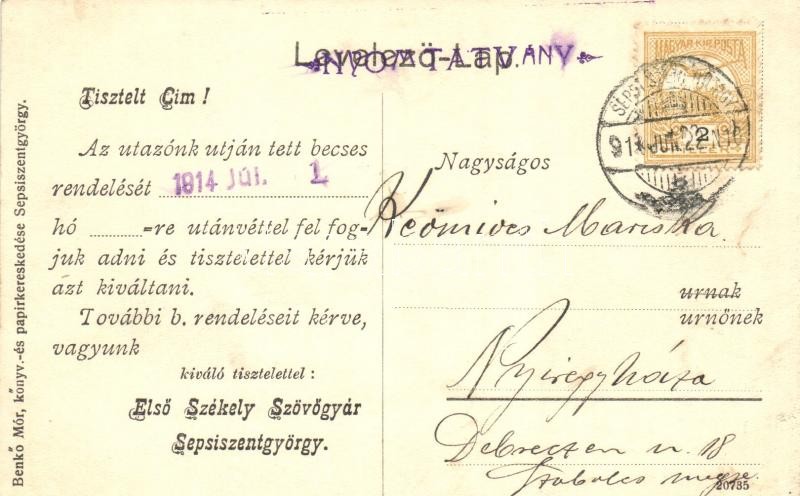 Levelező-Lap.
NYOMTATVÁNY
MAGYAR KIR. POSTA
2
Tisztelt Cim!
Az utazónk utján tett becses
rendelését 1914 JÚL. 1
hó ______=re utánvéttel fel fog-
juk adni és tisztelettel kérjük
azt kiváltani.
További b. rendeléseit kérve,
vagyunk
kiváló tisztelettel:
Első Székely Szövőgyár
Sepsiszentgyörgy.
Benkő Mór, könyv.-és papirkereskedése Sepsiszentgyörgy.
Nagyságos
Keömives Mariska
urnak
urnőnek
Nyiregyháza
Debreczen u. 18
Szabolcs megye
20735